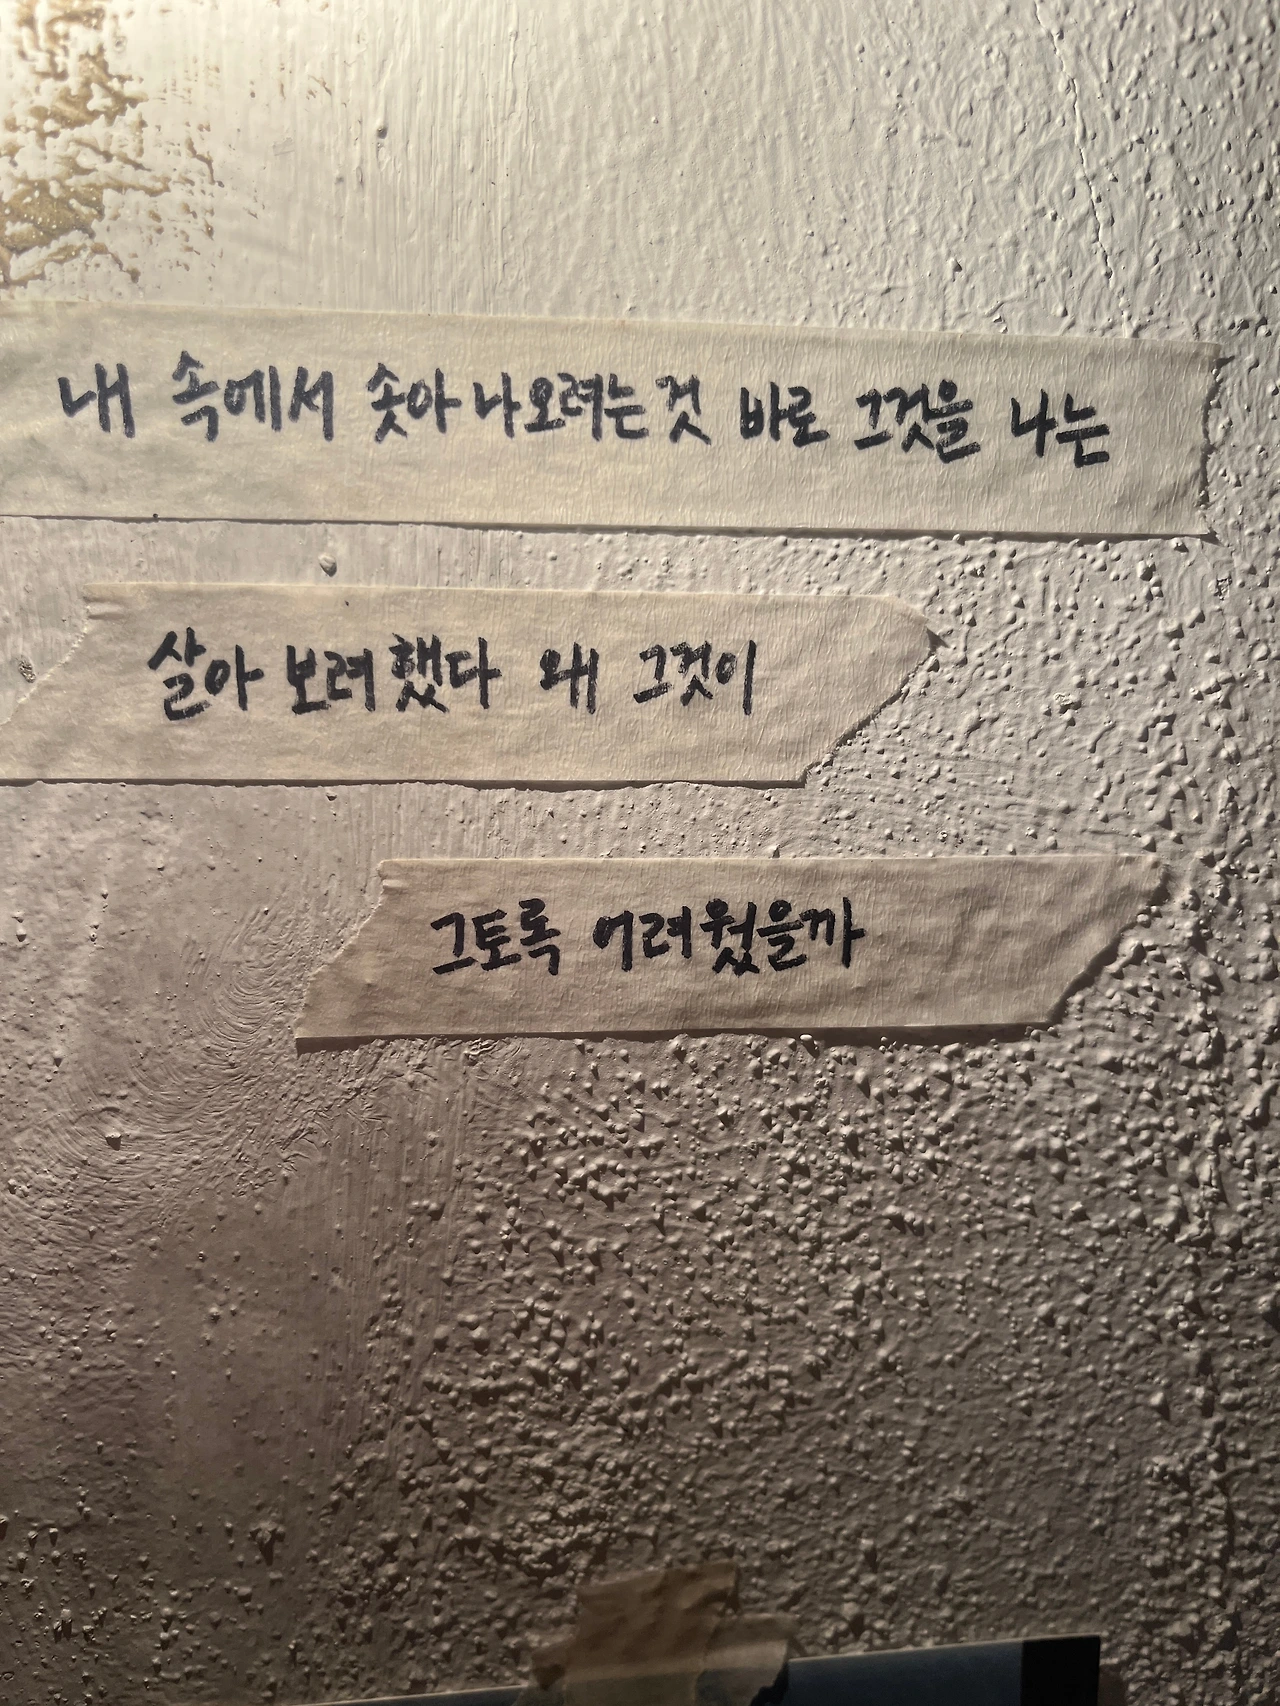 내 속에서 솟아 나오려는 것 바로 그것을 나는
살아 보려 했다 왜 그것이
그토록 어려웠을까